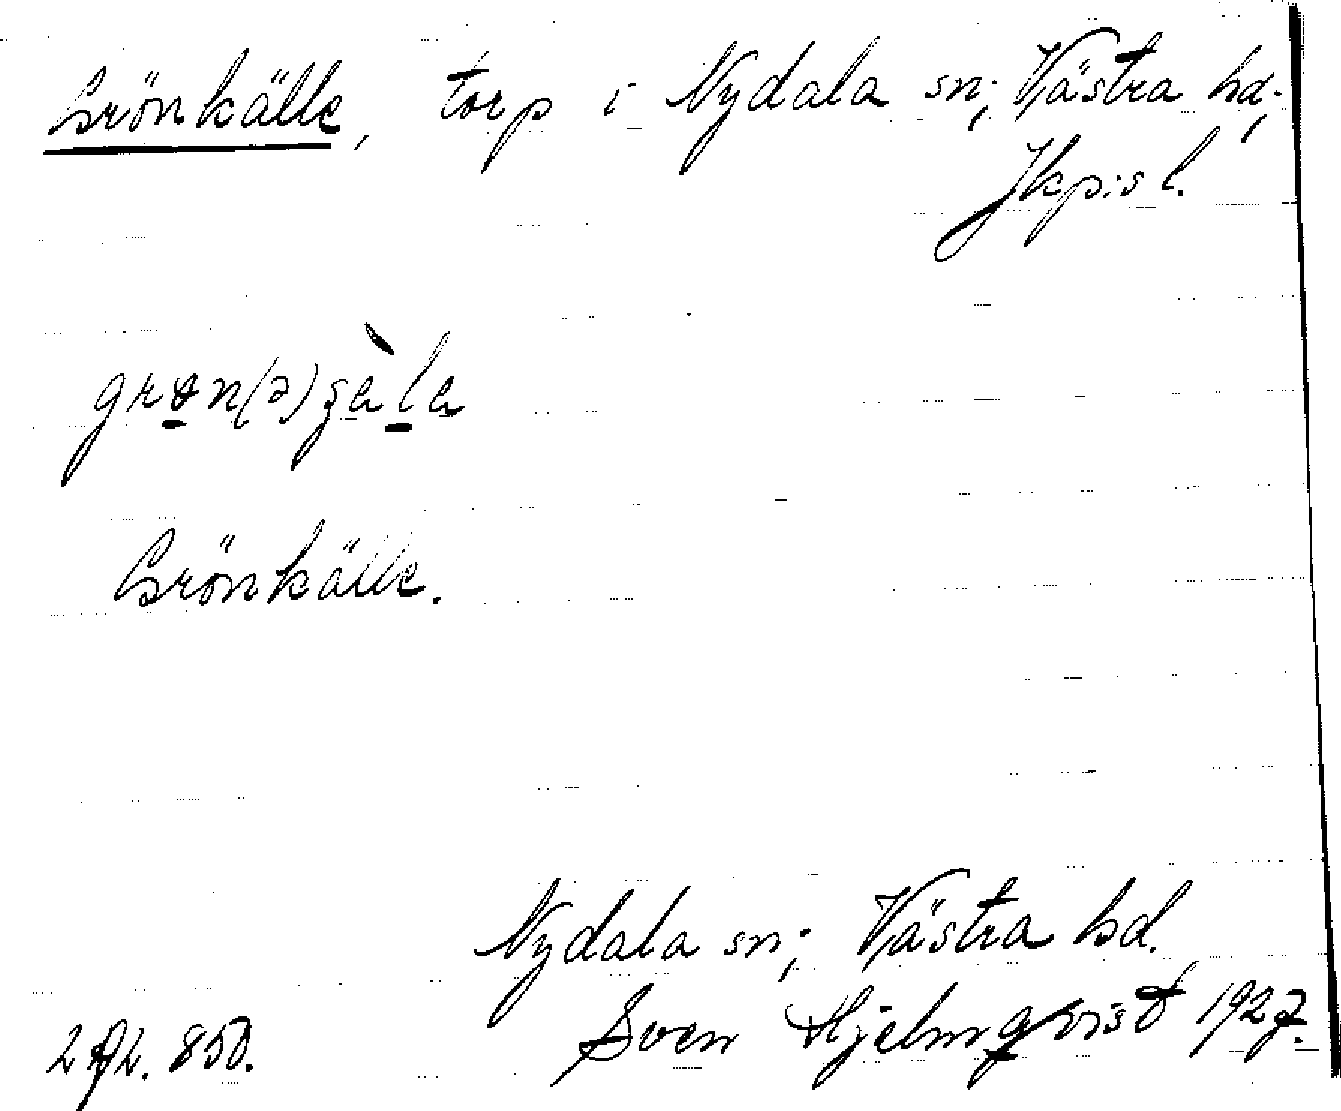 Grönkälle, torp i Nydala sn; Västra hd;
Jkp:s l.
Grönkälle.
Nydala sn; Västra hd.
Sven Hjelmqvist 1927.